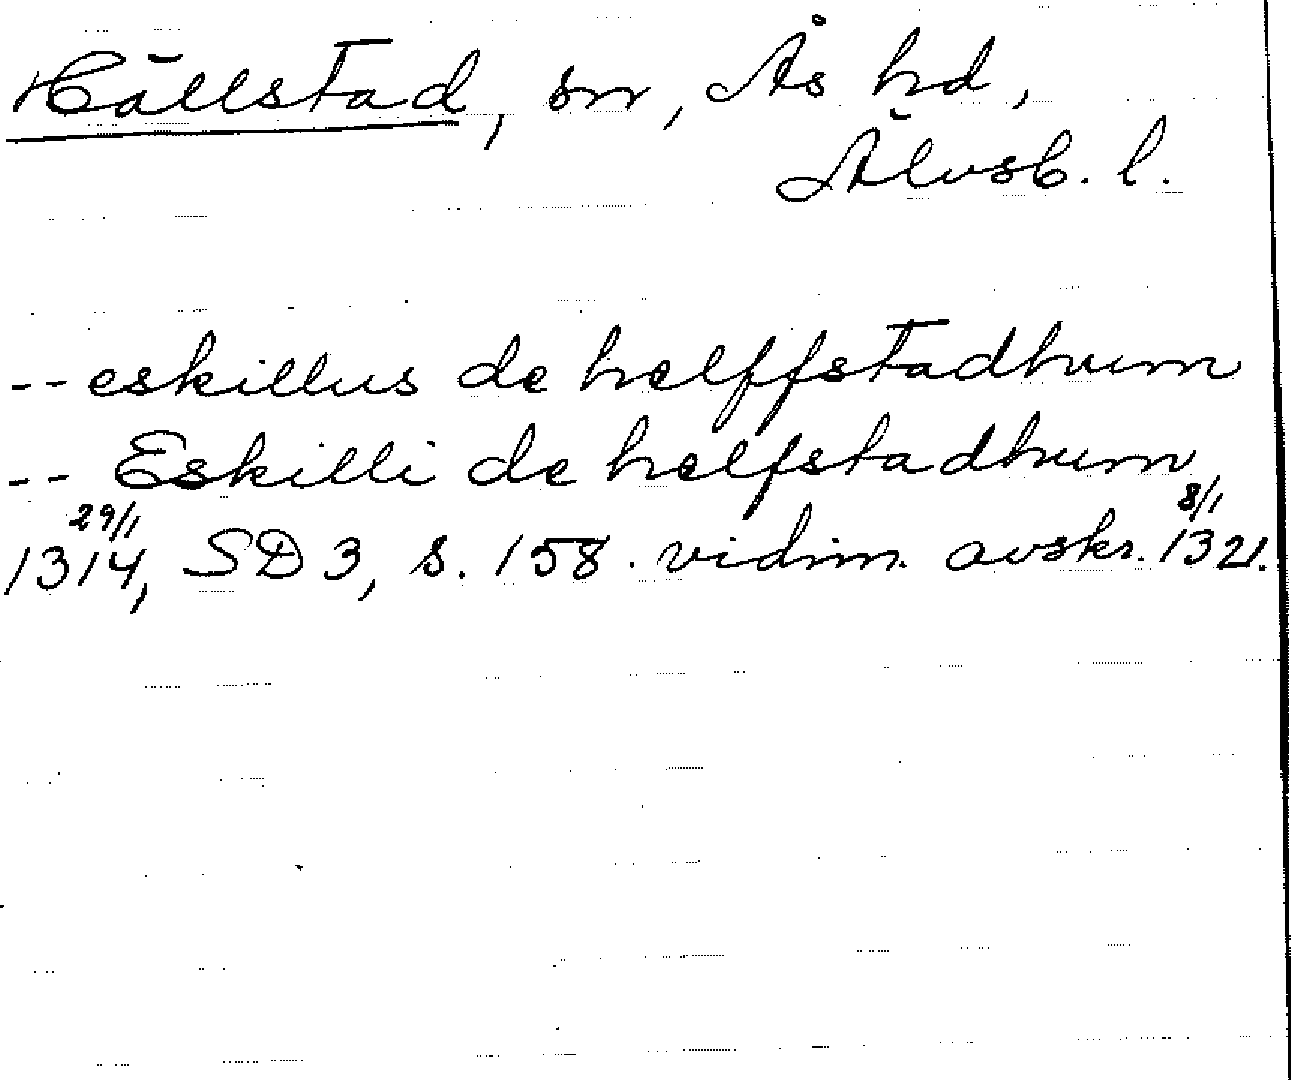 Hällstad, sn, Ås hd,
Älvsb. l.
-- eskillus de helffstadhum
-- Eskilli de helfstadhum
29/1 8/1
1314, SD 3, s. 158. vidim. avskr. 1321.